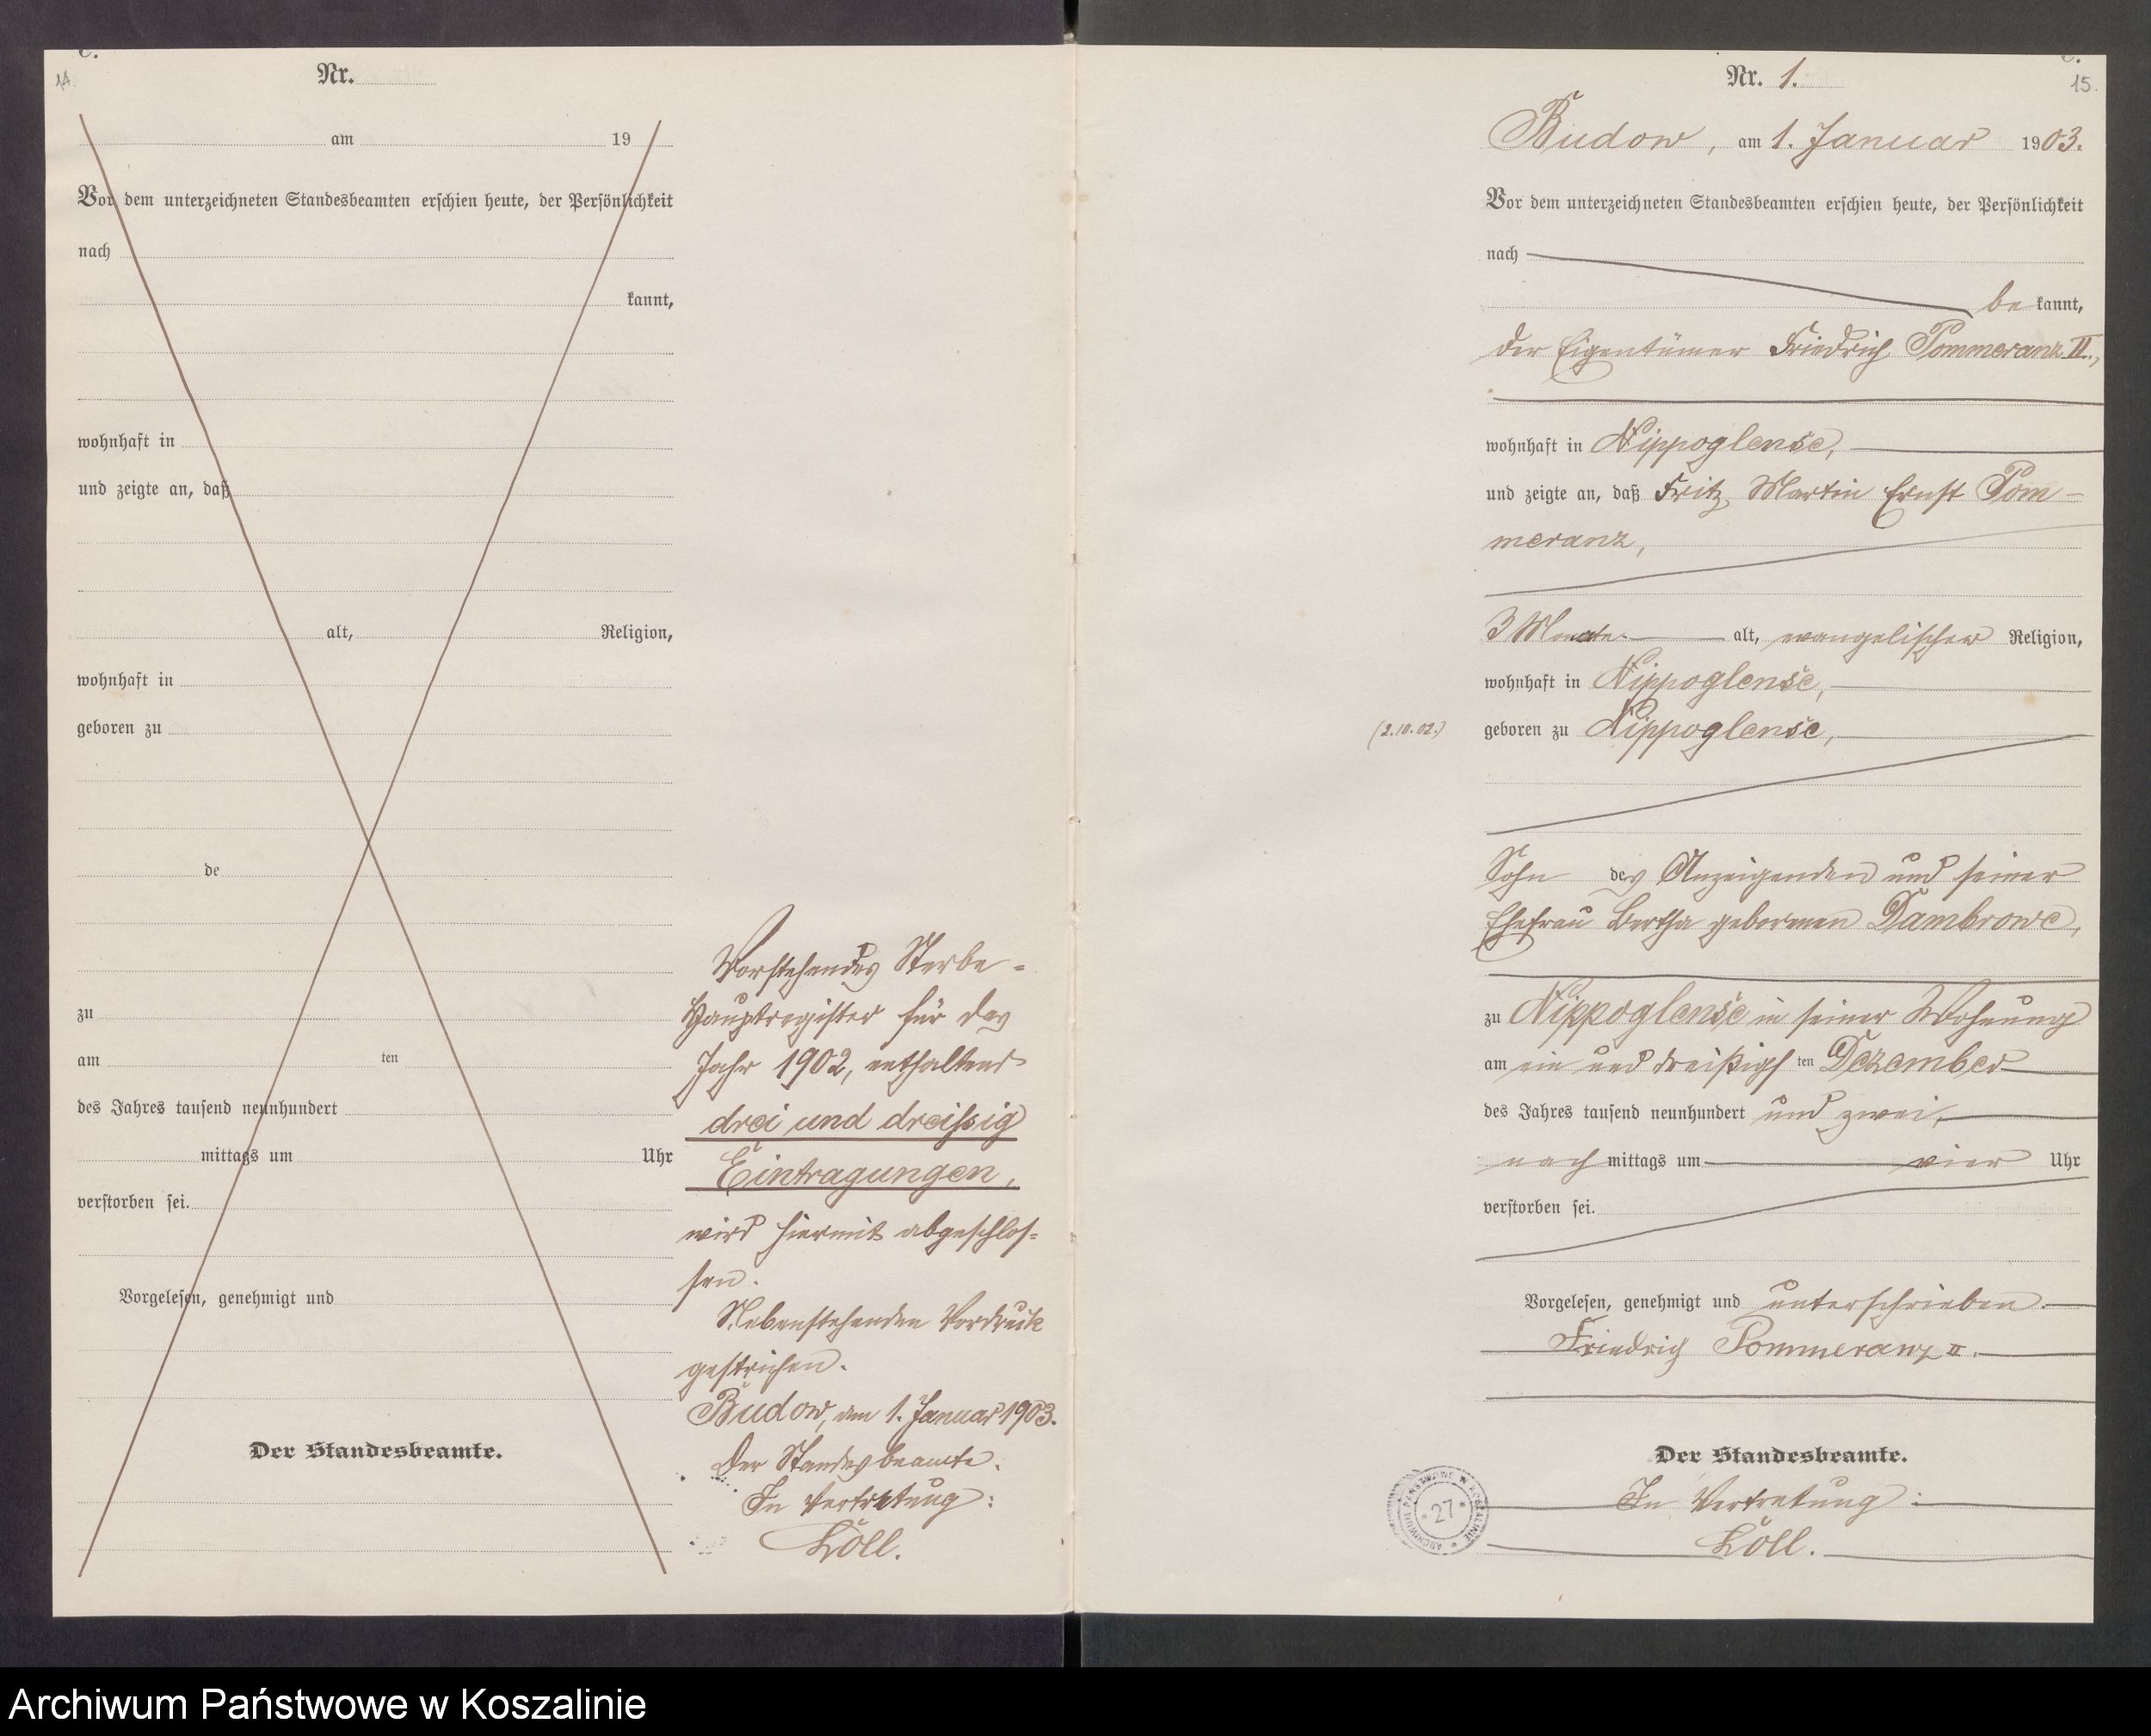 C.
14.
Nr.
am 19
Vor dem unterzeichneten Standesbeamten erschien heute, der Persönlichkeit
nach
kannt,
wohnhaft in
und zeigte an, daß
alt, Religion,
wohnhaft in
geboren zu
de
zu
am ten
des Jahres tausend neunhundert
mittags um Uhr
verstorben sei.
Vorgelesen, genehmigt und
Der Standesbeamte.
Vorstehendes Sterbe-
Hauptregister für das
Jahr 1902, enthaltend
drei und dreissig
Eintragungen,
wird hiermit abgeschlos-
sen.
Nebenstehenden Vordruck
gestrichen.
Budow, am 1. Januar 1903.
Der Standesbeamte.
In Vertretung:
Löll.
C.
15.
Nr. 1.
Budow, am 1. Januar 1903.
Vor dem unterzeichneten Standesbeamten erschien heute, der Persönlichkeit
nach
be kannt,
der Eigentümer Friedrich Pommeranz II.,
wohnhaft in Nippoglense,
und zeigte an, daß Fritz Martin Ernst Pom-
meranz,
3 Monate alt, evangelischer Religion,
wohnhaft in Nippoglense,
(2.10.02.) geboren zu Nippoglense,
Sohn des Anzeigenden und seiner
Ehefrau Bertha geborenen Dambrowe,
zu Nippoglense in seiner Wohnung
am ein und dreißigsten Dezember
des Jahres tausend neunhundert und zwei,
nach mittags um vier Uhr
verstorben sei.
Vorgelesen, genehmigt und unterschrieben.
Friedrich Pommeranz II.
Der Standesbeamte.
In Vertretung:
Löll.
ARCHIWUM PAŃSTWOWE W KOSZALINIE
* 27 *
Archiwum Państwowe w Koszalinie